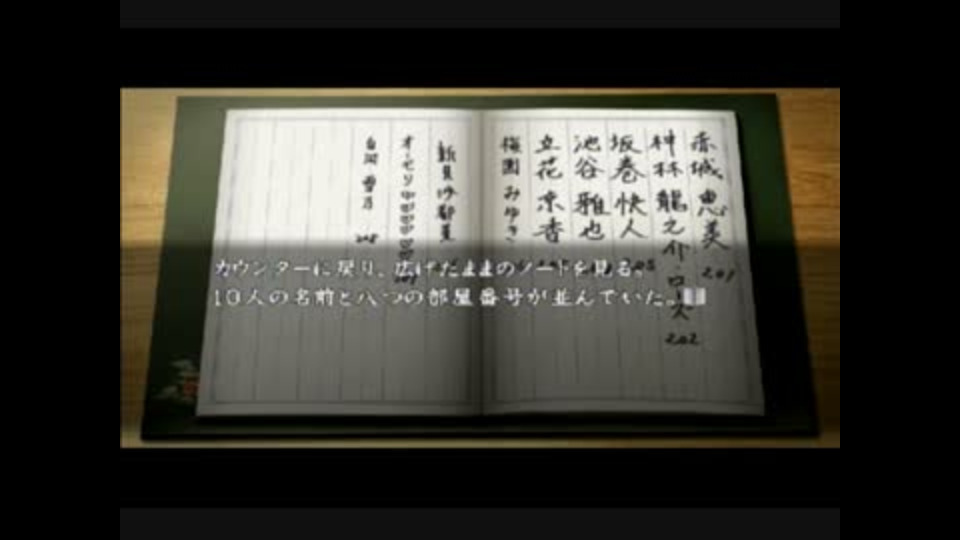 赤城 恵美 201
神林 龍之介・ロス 202
坂巻 快人
池谷 雅也
立花 京香
梅園 みゆき
新見 沙都
オーセリ
白河 雪乃 208
カウンターに戻り、広げたままのノートを見る。
10人の名前と八つの部屋番号が並んでいた。